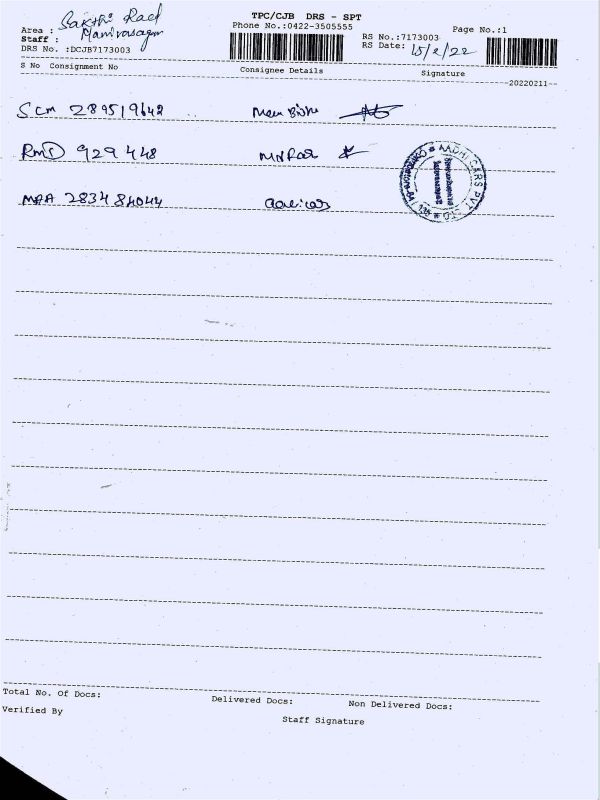 TPC/CJB DRS - SPT
Area : Sakthi Road
Phone No.:0422-3505555
Page No.:1
Staff : Manivasagam
RS No.:7173003
DRS No. :DCJB7173003
RS Date: 15/2/22
S No Consignment No Consignee Details Signature
--20220211--
SCM 289519642
RMD 929448
MAA 283484044
AADHI CARS PVT LTD
Total No. Of Docs: Delivered Docs: Non Delivered Docs:
Verified By Staff Signature